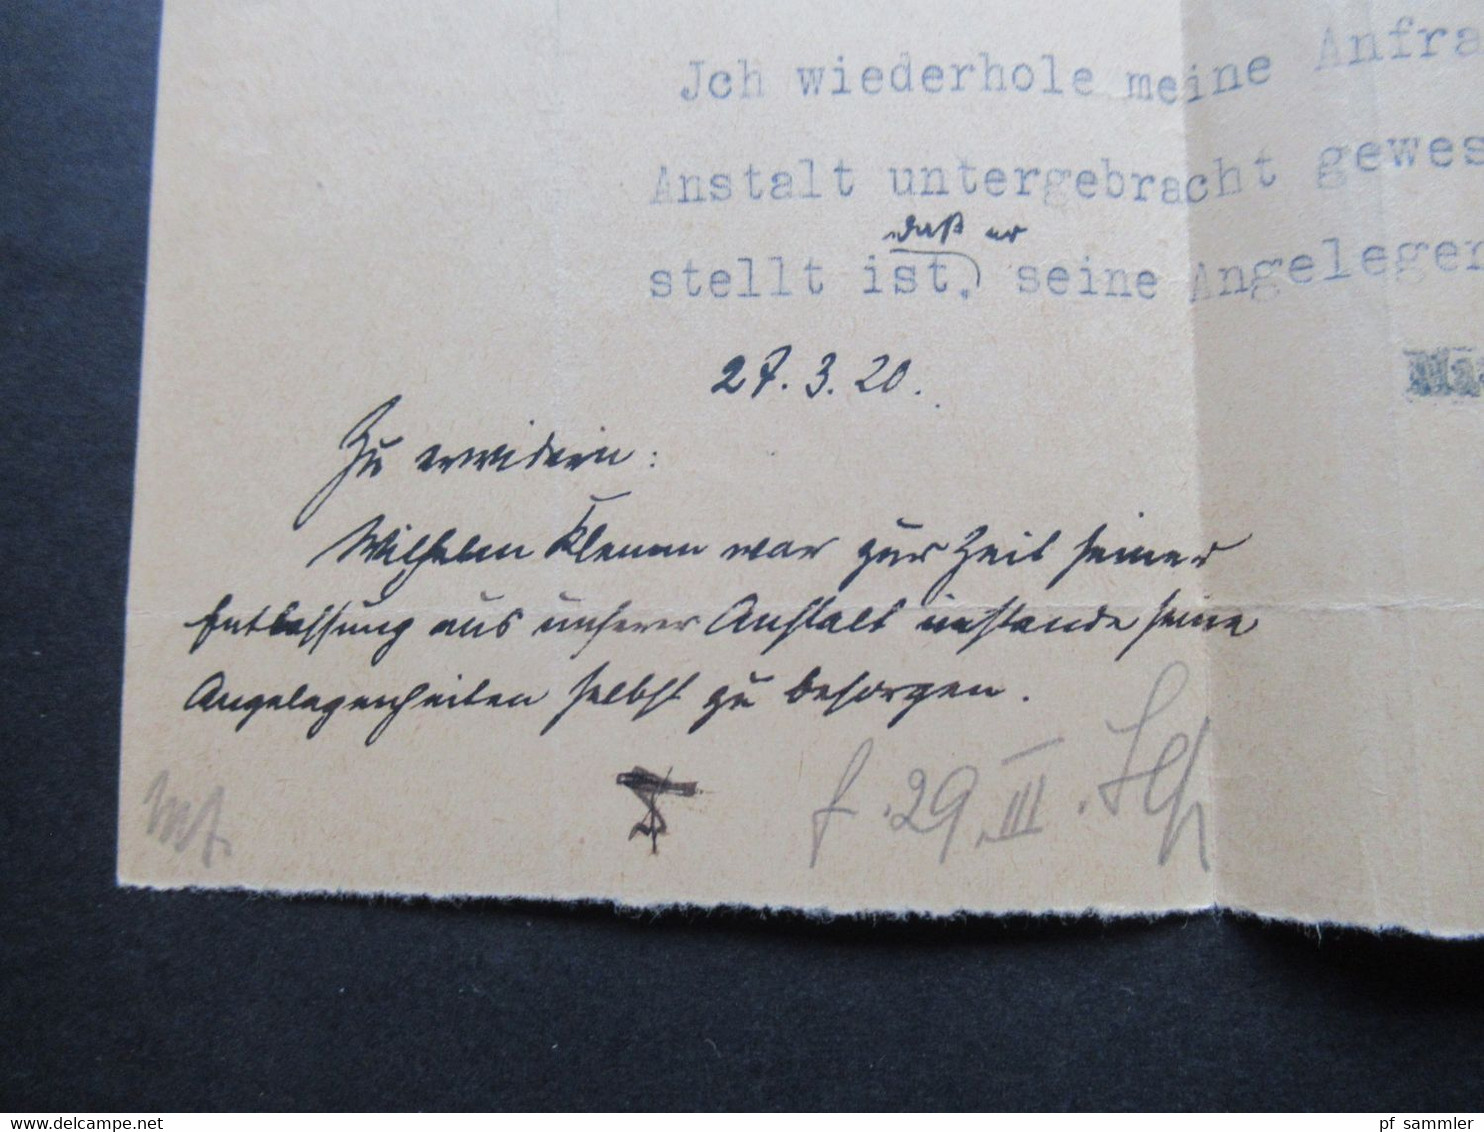 Jch wiederhole meine Anfra
Anstalt untergebracht gewes
daß er
stellt ist. seine Angelegen
27.3.20.
Zu erwidern:
Wilhelm war zur Zeit seiner
Entlassung aus unserer Anstalt imstande seine
Angelegenheiten selbst zu besorgen.
f. 29. III.
www.delcampe.net
pf_sammler